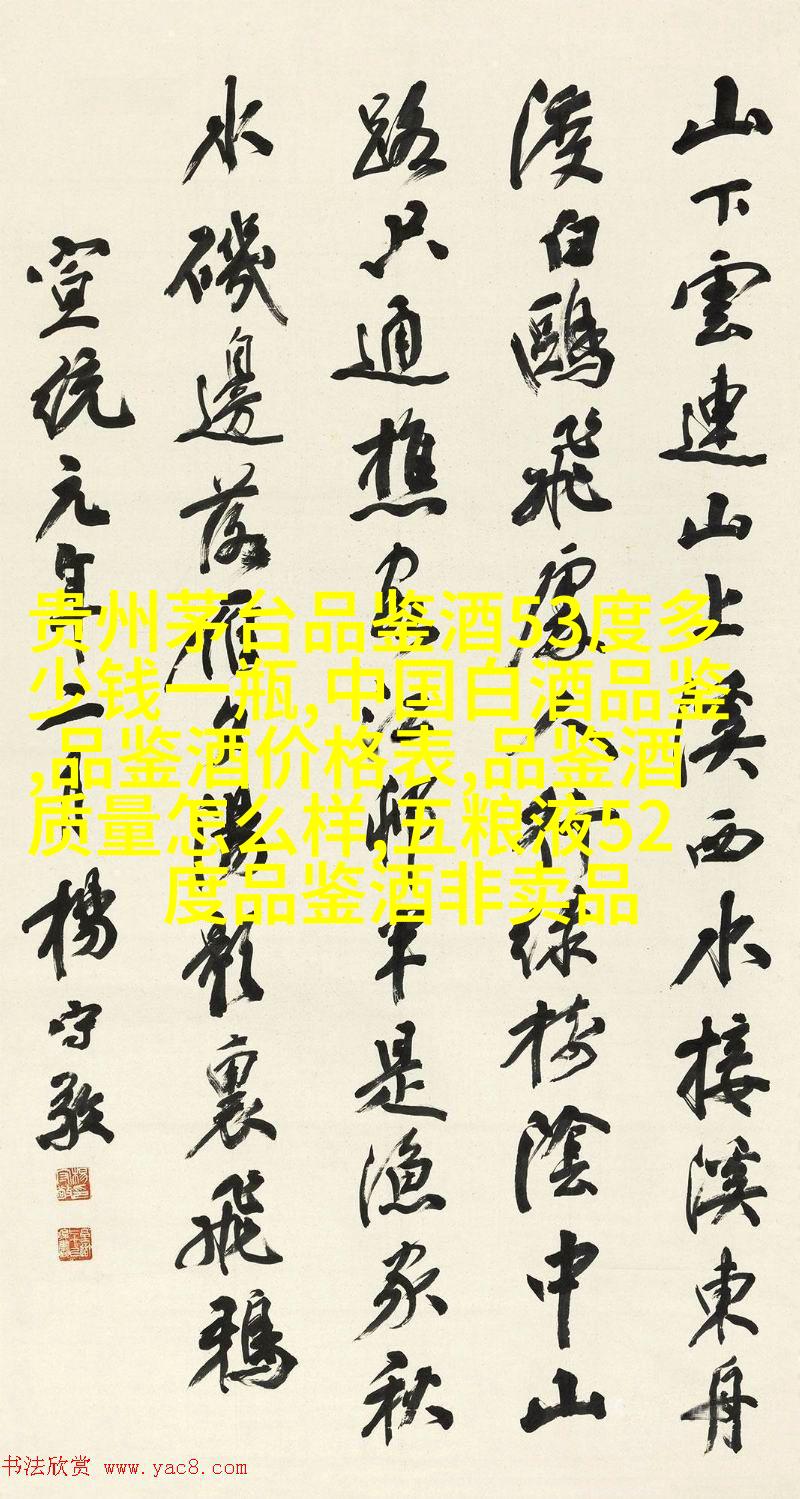 山下雲連山上溪西水接溪東舟
渡白鷗飛處人行綠樹陰中山
路只通樵客江邨半是漁家秋
水磯邊落雁夕陽影裏飛鴉
宣統元年二月楊守敬
贵州茅台品鉴酒53度多
少钱一瓶,中国白酒品鉴
,品鉴酒价格表,品鉴酒
质量怎么样,五粮液52
度品鉴酒非卖品
书法欣赏 www.yac8.com